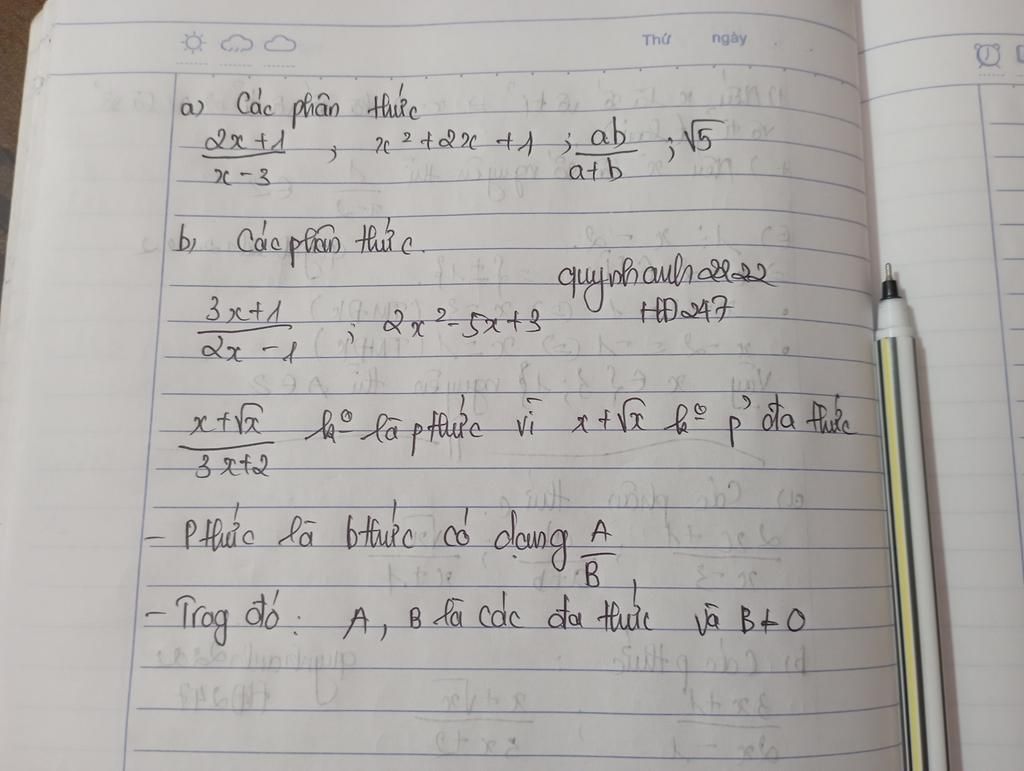 Thứ ngày
a) Các phân thức
(2x+1)/(x-3) ; x² + 2x + 1 ; ab/(a+b) ; √5
b, Các phân thức.
quynhanh2222
HD247
(3x+1)/(2x-1) ; 2x² - 5x + 3
(x+√x)/(3x+2) k° là pthức vì x+√x k° p' đa thức
- Pthức là bthức có dạng A/B,
- Trog đó: A, B là các đa thức và B ≠ 0